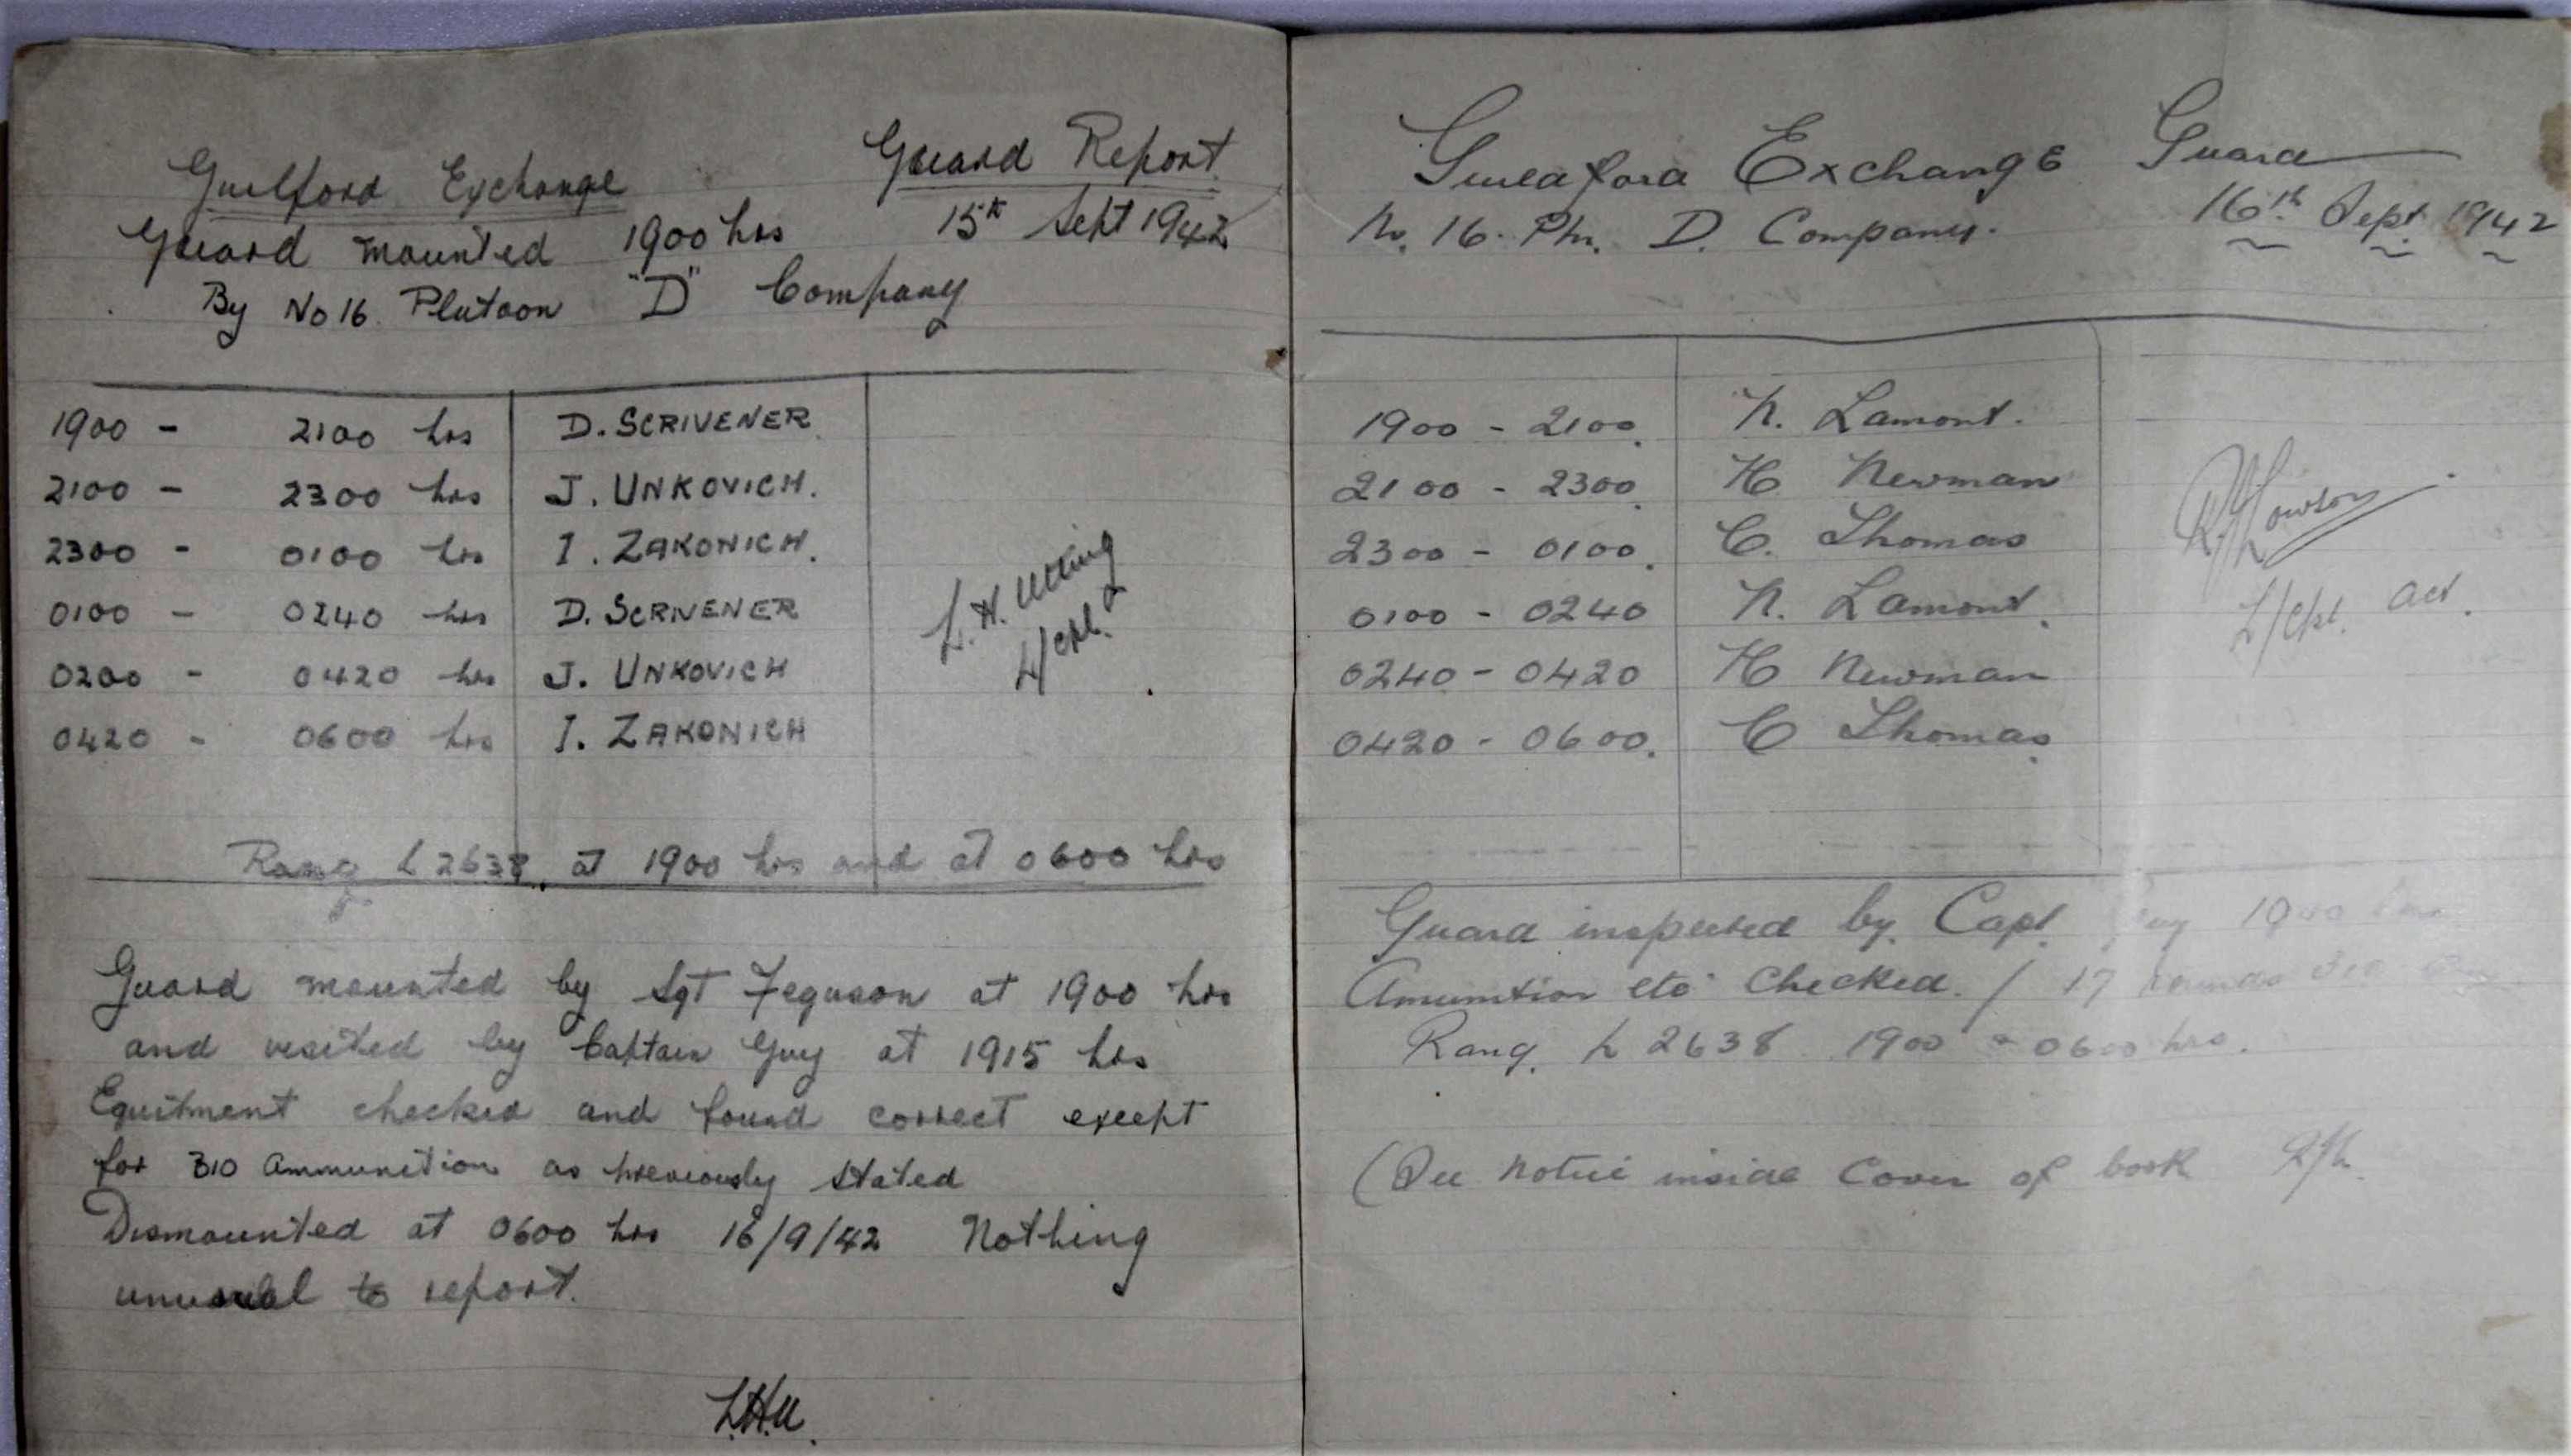 Guilford Exchange
Guard Report
Guard mounted 1900 hrs
15th Sept 1942
By No 16 Plutoon "D" Company
1900 - 2100 hrs D. SCRIVENER
2100 - 2300 hrs J. UNKOVICH.
2300 - 0100 hrs I. ZAKONICH.
0100 - 0240 hrs D. SCRIVENER
0200 - 0420 hrs J. UNKOVICH
0420 - 0600 hrs I. ZAKONICH
L. H. Utting
L/Cpl.
Rang L 2638. at 1900 hrs and at 0600 hrs
Guard mounted by Sgt Feguson at 1900 hrs
and visited by Captain Guy at 1915 hrs
Equitment checked and found correct except
for 310 Ammunition as previously stated
Dismounted at 0600 hrs 16/9/42 Nothing
unusual to report.
L.H.U.
Exchange Guard
16th Sept 1942
No. 16. Pln. D. Company.
1900 - 2100. N. Lamont.
2100 - 2300. H Newman
2300 - 0100. C. Thomas
0100 - 0240 N. Lamont.
0240 - 0420 H Newman
0420 - 0600. C Thomas
L/Cpl. Act.
Guard inspected by. Capt.
Amunition etc checked. / 17 rounds 310
Rang. L 2638 1900 0600 hrs.
(See notice inside Cover of book